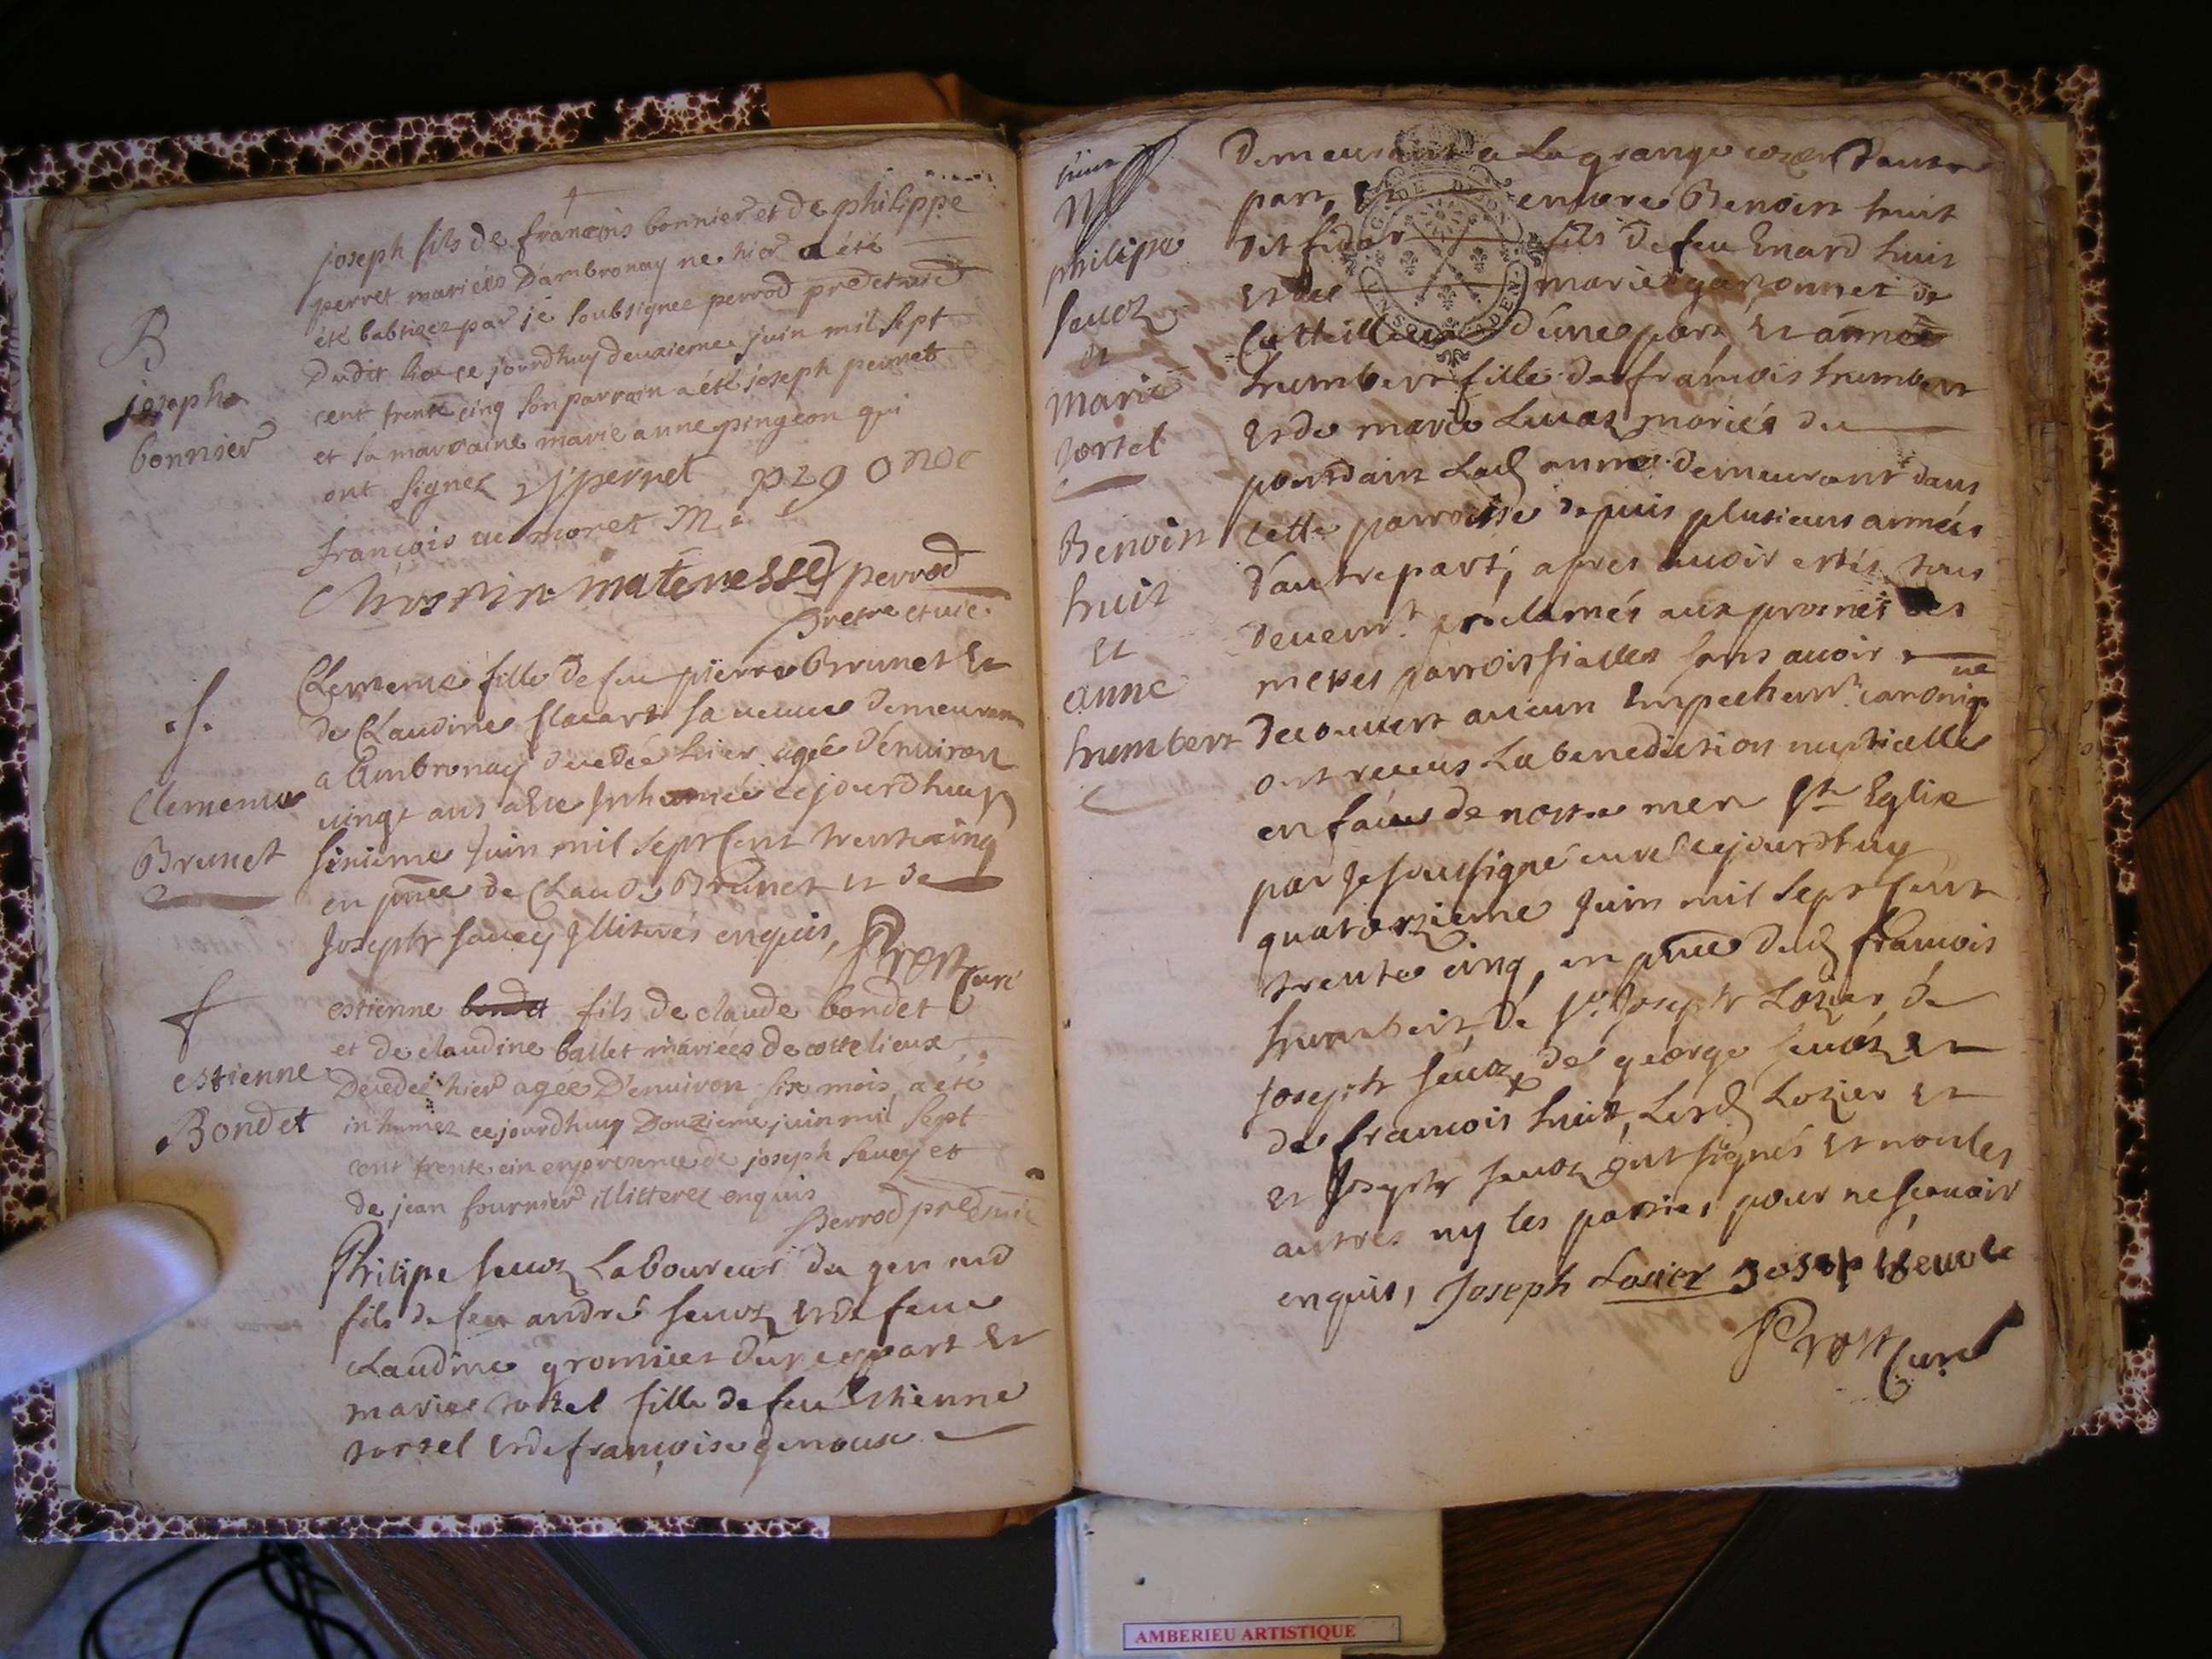 B
joseph
bonnier
joseph fils de françois bonnier et de philippe
perret mariées D'ambronay ne hier a été
été babtisez par je soubsignee perrod pre et vic
Dudit lieu ce jourdhuy deuxieme juin mil sept
cent trente cinq son parrain a été joseph pernet
et sa marraine marie anne pingeon qui
ont signez j pernet
françois
perrod
Pretre et vic.
Clemence
Brunet
Clemence fille de feu pierre Brunet Et
de Claudine sa veuve demeurant
a Ambronay decedée hier agée d'environ
vingt ans a Ete Inhumée cejourdhuy
sixieme Juin mil sept Cent trente cinq
en pnce de Claude Brunet et de
Joseph savey Illiterés enquis, Prost
Curé
f
estienne
Bondet
estienne bondet fils de claude bondet
et de claudine ballet mariées de cotte lieux
Decedee hier agée D'environ six mois a eté
inhumez ce jourdhuy Douzieme juin mil sept
cent trente cin en presence de joseph savey et
de jean fournier illitterez enquis
perrod pre et vic
Philipe sevoz Laboureur du genoud
fils de feu andré sevoz et de feue
claudine gromier d'une part Et
marie tortel fille de feu Etienne
tortel et de françoise genoux
philipe
sevoz
et
marie
tortel
Benoist
huit
Et
anne
humbert
Demeurant a La grange d'autre
part, Et encore Benoist huit
dit fils de feu Enard huit
et de marie garonnet de
d'une part Et anne
humbert fille de francois humbert
Et de marie Lucaz mariés du
Lad anne demeurant dans
cette parroisse depuis plusieurs années
d'autre part, apres avoir estés tous
deuemt proclamés aux prosnes des
messes parroissialles sans avoir
decouvert aucun Empechemt canoniq
ue
ont receus La benediction nuptialle
en face de nostre mere ste Eglise
par Je soussigné curé cejourdhuy
quatorzieme Juin mil sept Cent
trente cinq, en pnce dud francois
humbert, de sr Joseph Lozier, de
Joseph sevoz, de george sevoz et
de francois huit, Lesd Lozier et
et Joseph sevoz ont signés et non les
autres ny les parties pour ne scavoir
enquis, Joseph Losier Josep
Prost
Curé
AMBERIEU ARTISTIQUE